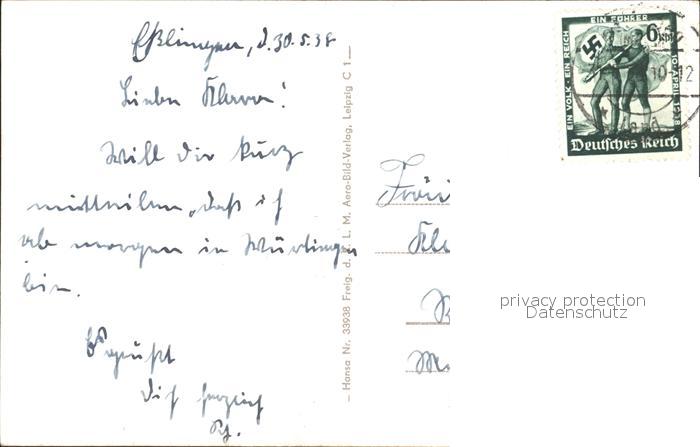 Eßlingen, d. 30.5.38
Liebe Klara!
Will dir kurz
mitteilen, daß ich
ab morgen in
bin.
Es grüßt
dich herzlich
— Hansa Nr. 33938 Freig. d. R. L. M. Aero-Bild-Verlag, Leipzig C 1 —
EIN VOLK · EIN REICH
EIN FÜHRER
10. APRIL 1938
6
Deutsches Reich
10-12
privacy protection
Datenschutz